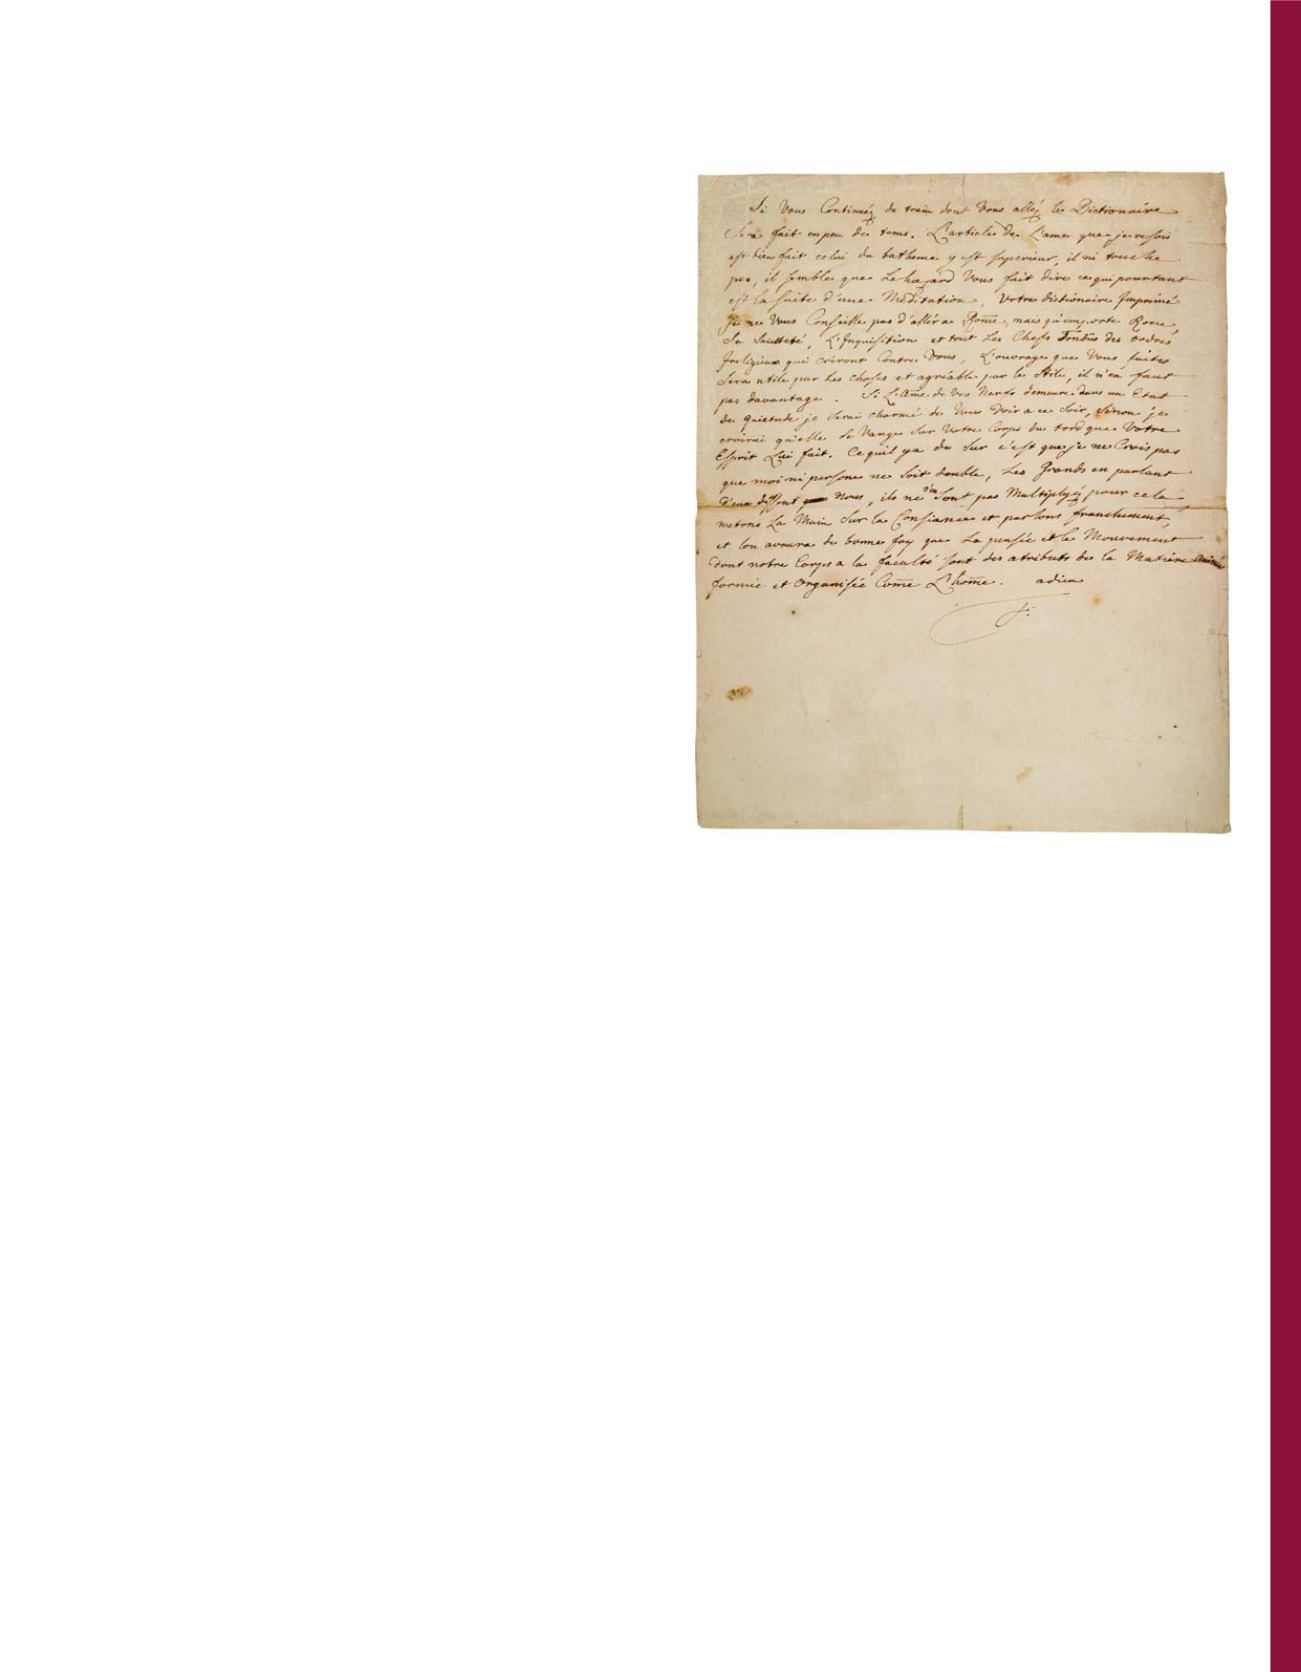 Si Vous Continuéz du train dont Vous alléz le Dictionaire
Sera fait en peu de tems. L'article de L'ame que je resois
est bien fait celui du batheme y est superieur, il ni touche
pas, il semble que Le hazard Vous fait dire ce qui pourtant
est la suite d'une Méditation, Votre dictionaire Imprimé
Je ne Vous Conseille pas d'allér a Rome, mais qu'importe Rome,
Sa Saintteté, L'Inquisition et tout Les Chefs Tondûs des ordres
Irreligieux qui criront Contre Vous, L'ouvrage que Vous faites
Sera utile par Les choses et agréable par le Stile, il n'en faut
pas davantage. Si L'Ame de Vos Nerfs demeure dans un Etat
de quietude je serai charmé de Vous Voir a ce Soir, Sinon je
croirai qu'elle Se Vange Sur Votre Corps du tord que Votre
Esprit Lui fait. Ce quil ya de Sur c'est que je ne Crois pas
que moi ni persone ne Soit double, Les Grands en parlant
d'eux disent nous, ils n'en Sont pas Multipliyéz pour cela
metons La Main Sur la Consiance et parlons franchement,
et lon avoura de bonne foy que La pensée et le Mouvement
dont notre Corps a la faculté sont des atributs de la Matiere Animée
formée et Organisée Come L'home. adieu